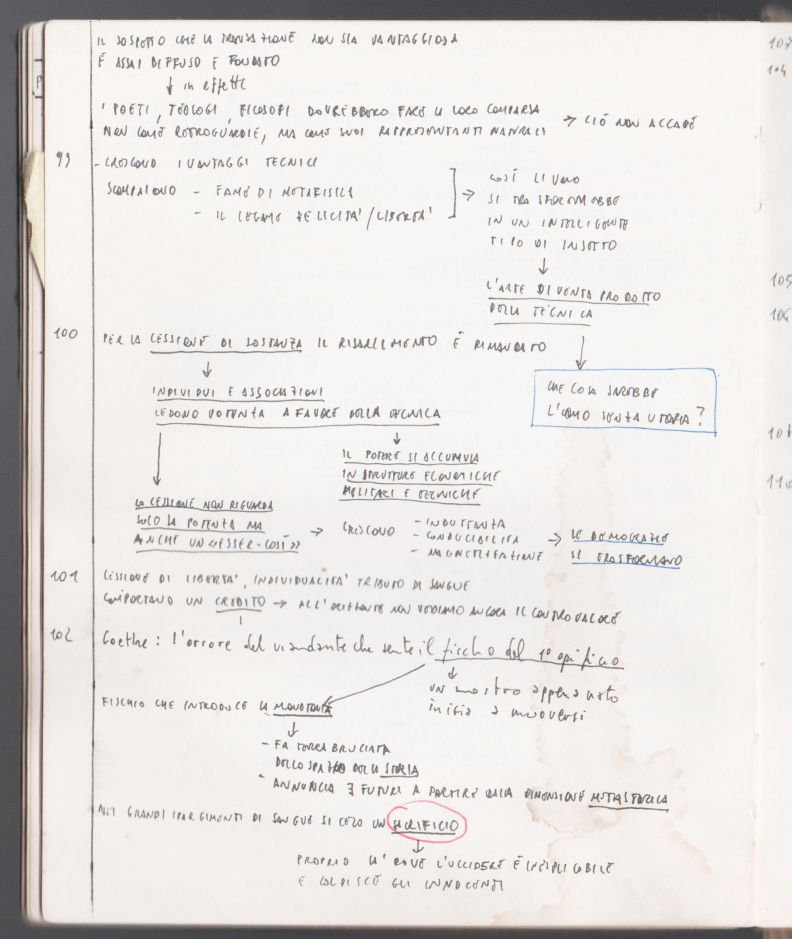 IL SOSPETTO CHE LA TRANSAZIONE NON SIA VANTAGGIOSA
È ASSAI DIFFUSO E FONDATO
↓ in effetti
I POETI, TEOLOGI, FILOSOFI DOVREBBERO FARE LA LORO COMPARSA
NON COME RETROGUARDIE, MA COME SUOI RAPPRESENTANTI NATURALI → CIÒ NON ACCADE
99 - CRESCONO I VANTAGGI TECNICI
SCOMPAIONO - FAME DI METAFISICA
- IL LEGAME FELICITA'/LIBERTA'
→ COSÌ L'UOMO
SI TRASFORMEREBBE
IN UN INTELLIGENTE
TIPO DI INSETTO
↓
L'ARTE DIVENTA PRODOTTO
DELLA TECNICA
100 PER LA CESSIONE DI SOSTANZA IL RISARCIMENTO È RIMANDATO
↓
INDIVIDUI E ASSOCIAZIONI
CEDONO POTENZA A FAVORE DELLA TECNICA
CHE COSA SAREBBE
L'UOMO SENZA UTOPIA?
IL POTERE SI ACCUMULA
IN STRUTTURE ECONOMICHE
MILITARI E TECNICHE
LA CESSIONE NON RIGUARDA
SOLO LA POTENZA MA
ANCHE UN «ESSER-COSÌ»
→ CRESCONO - INDOTTANZA
- CONDUCIBILITÀ
- MAGNETIZZAZIONE
→ LE DEMOCRAZIE
SI TRASFORMANO
101 CESSIONE DI LIBERTA', INDIVIDUALITA' TRIBUTO DI SANGUE
COMPORTANO UN CREDITO → ALL'ORIZZONTE NON VEDIAMO ANCORA IL CONTROVALORE
102 Goethe: l'orrore del viandante che sente il fischio del 1° opificio
↓
UN mostro appena nato
inizia a muoversi
FISCHIO CHE INTRODUCE LA MONOTONIA
↓
- FA TERRA BRUCIATA
DELLO SPAZIO DELLA STORIA
- ANNUNCIA ∃ FUTURI A PARTIRE DALLA DIMENSIONE METASTORICA
NEI GRANDI SPARGIMENTI DI SANGUE SI CELA UN SACRIFICIO
↓
PROPRIO LA' DOVE L'UCCIDERE È INESPLICABILE
E COLPISCE GLI INNOCENTI
103
104
105
106